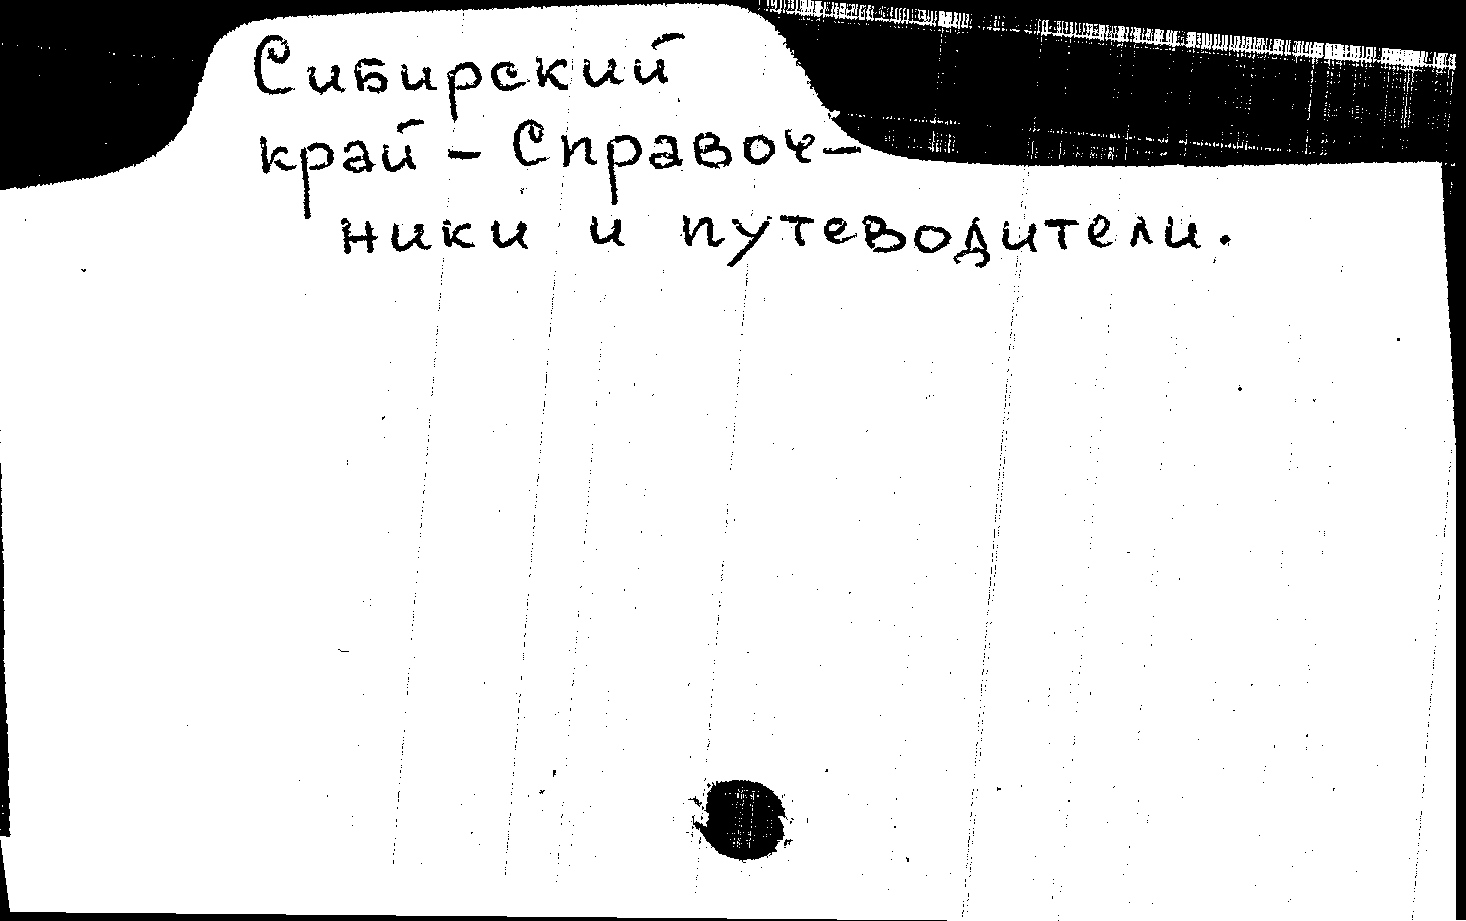 Сибирский
край - Справоч-
ники и путеводители.